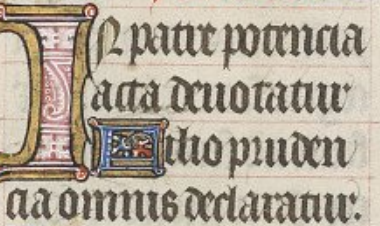 IN patre potencia
acta denotatur
Filio pruden
cia omnis declaratur.